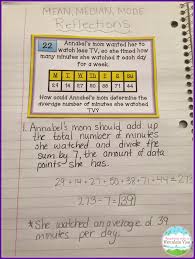 MEAN, MEDIAN, MODE
Reflections
22
Annabel's mom wanted her to
watch less TV, so she timed how
many minutes she watched it each day
for a week.
M T W T F S S
29 14 71 27 50 38 44
How could Annabel's mom determine the
average number of minutes she watched
TV?
1. Annabel's mom should add up
the total number of minutes
she watched and divide the
sum by 7, the amount of data
points she has.
29+14+27+71+50+38+44
273÷7=39
*She watched an average of 39
minutes per day.